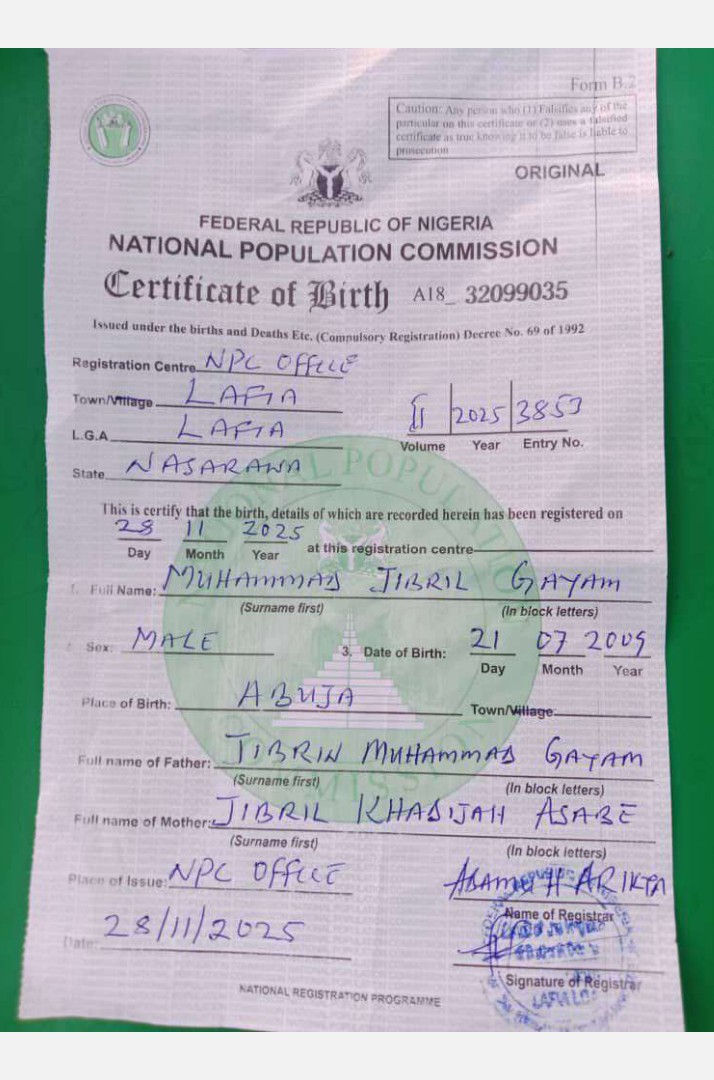 Form B.2
Caution: Any person who (1) Falsifies any of the
particular on this certificate or (2) uses a falsified
certificate as true knowing it to be false is liable to
prosecution
ORIGINAL
FEDERAL REPUBLIC OF NIGERIA
NATIONAL POPULATION COMMISSION
Certificate of Birth A18_ 32099035
Issued under the births and Deaths Etc. (Compulsory Registration) Decree No. 69 of 1992
Registration Centre NPC OFFICE
Town/Village LAFIA
L.G.A LAFIA
II 2025 3853
Volume Year Entry No.
State NASARAWA
This is certify that the birth, details of which are recorded herein has been registered on
28 11 2025
Day Month Year at this registration centre
1. Full Name: MUHAMMAD JIBRIL GAYAM
(Surname first) (In block letters)
Sex: MALE 3. Date of Birth: 21 07 2009
Day Month Year
Place of Birth: ABUJA Town/Village
Full name of Father: JIBRIN MUHAMMAD GAYAM
(Surname first) (In block letters)
Full name of Mother: JIBRIL KHADIJAH ASABE
(Surname first) (In block letters)
Place of Issue: NPC OFFICE ADAMU H ARIKYA
Name of Registrar
Date: 28/11/2025
Signature of Registrar
NATIONAL REGISTRATION PROGRAMME
NATIONAL POPULATION COMMISSION